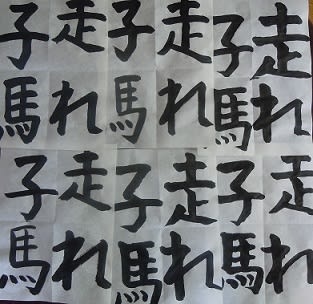 走れ
子馬
走れ
子馬
走れ
子馬
走れ
子馬
走れ
子馬
走れ
子馬